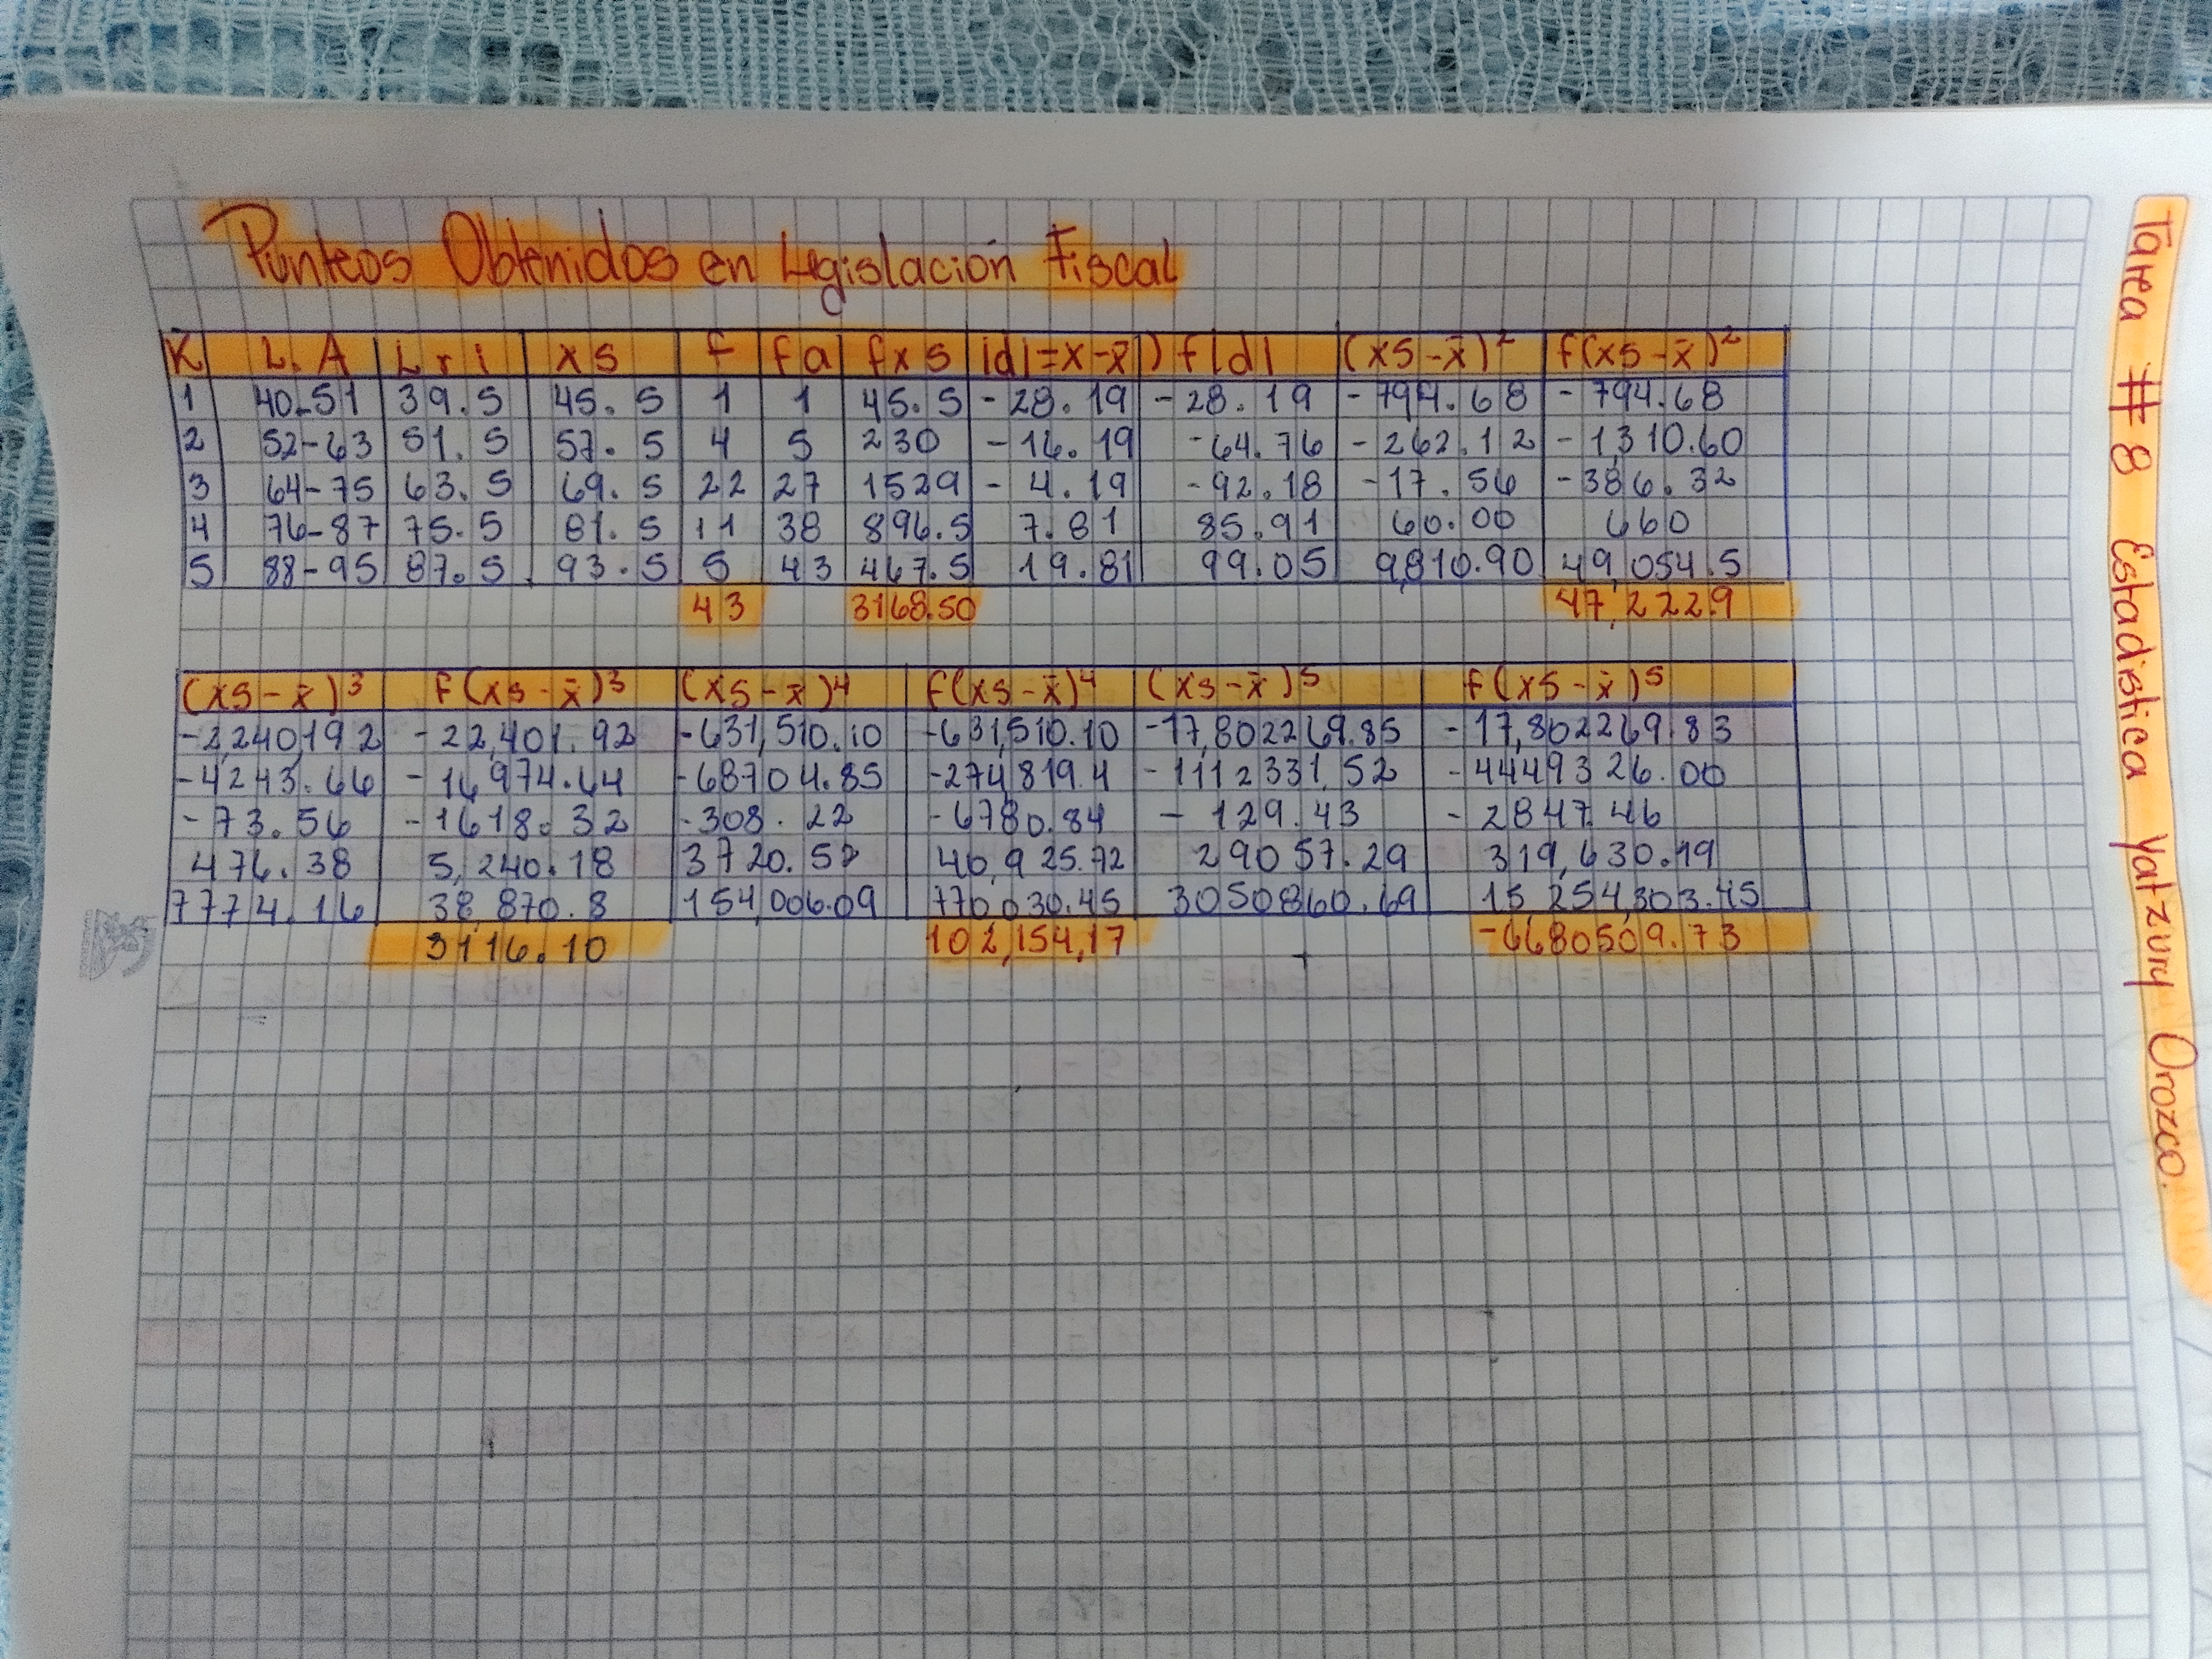 Punteos Obtenidos en Legislación Fiscal
K L.A Lri xs f fa fxs |d|=x-x̄) f|d| (xs-x̄)² f(xs-x̄)²
1 40-51 39.5 45.5 1 1 45.5 -28.19 -28.19 -794.68 -794.68
2 52-63 51.5 57.5 4 5 230 -16.19 -64.76 -262.12 -1,310.60
3 64-75 63.5 69.5 22 27 1529 -4.19 -92.18 -17.56 -386.32
4 76-87 75.5 81.5 11 38 896.5 7.81 85.91 60.00 660
5 88-95 87.5 93.5 5 43 467.5 19.81 99.05 9,810.90 49,054.5
43 3168.50 47,222.9
(xs-x̄)³ f(xs-x̄)³ (xs-x̄)⁴ f(xs-x̄)⁴ (xs-x̄)⁵ f(xs-x̄)⁵
-2,240,192 -22,401.92 -631,510.10 -631,510.10 -17,802269.85 -17,802269.83
-4243.66 -16,974.64 -68704.85 -274,819.4 -1112331.52 -4449326.00
-73.56 -1618.32 -308.22 -6780.84 -129.43 -2847.46
476.38 5,240.18 3720.52 40,925.72 29057.29 319,630.19
7774.16 38,870.8 154,006.09 770,030.45 3050860.69 15 254,303.45
3116.10 102,154,17 -6680509.73
Tarea #8 Estadistica Yatzury Orozco.